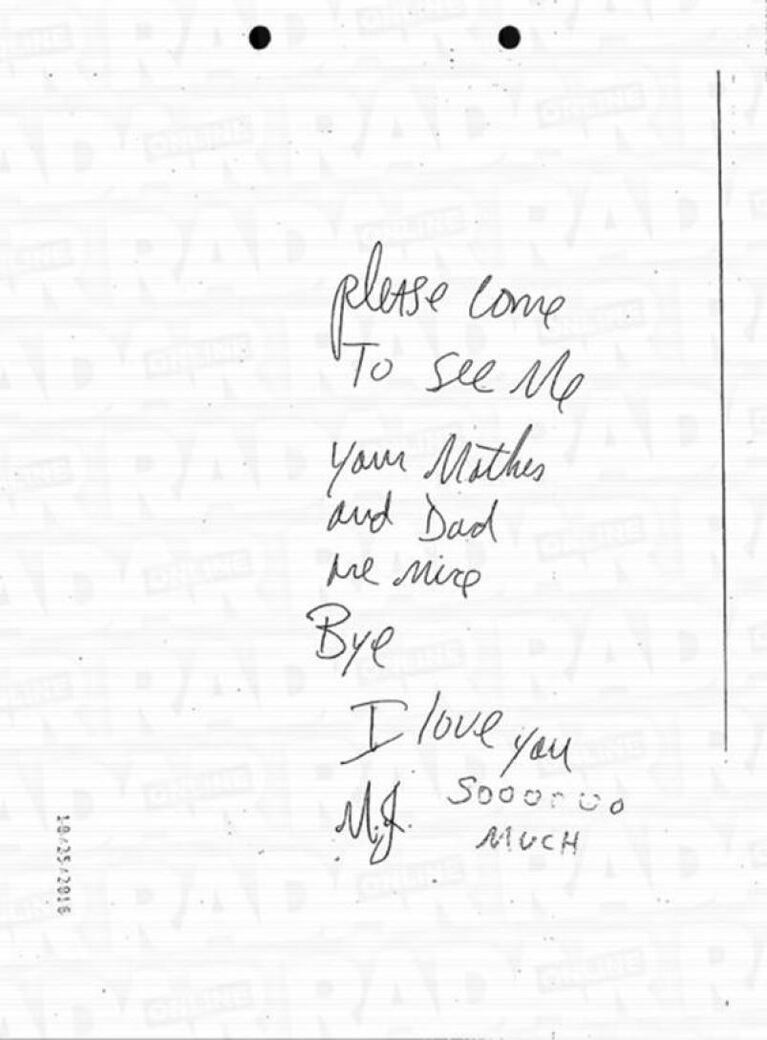 please come
To see Me
your Mother
and Dad
are nice
Bye
I love you
Soooooo
M.J.
MUCH
10/25/2016
RADAR
ONLINE